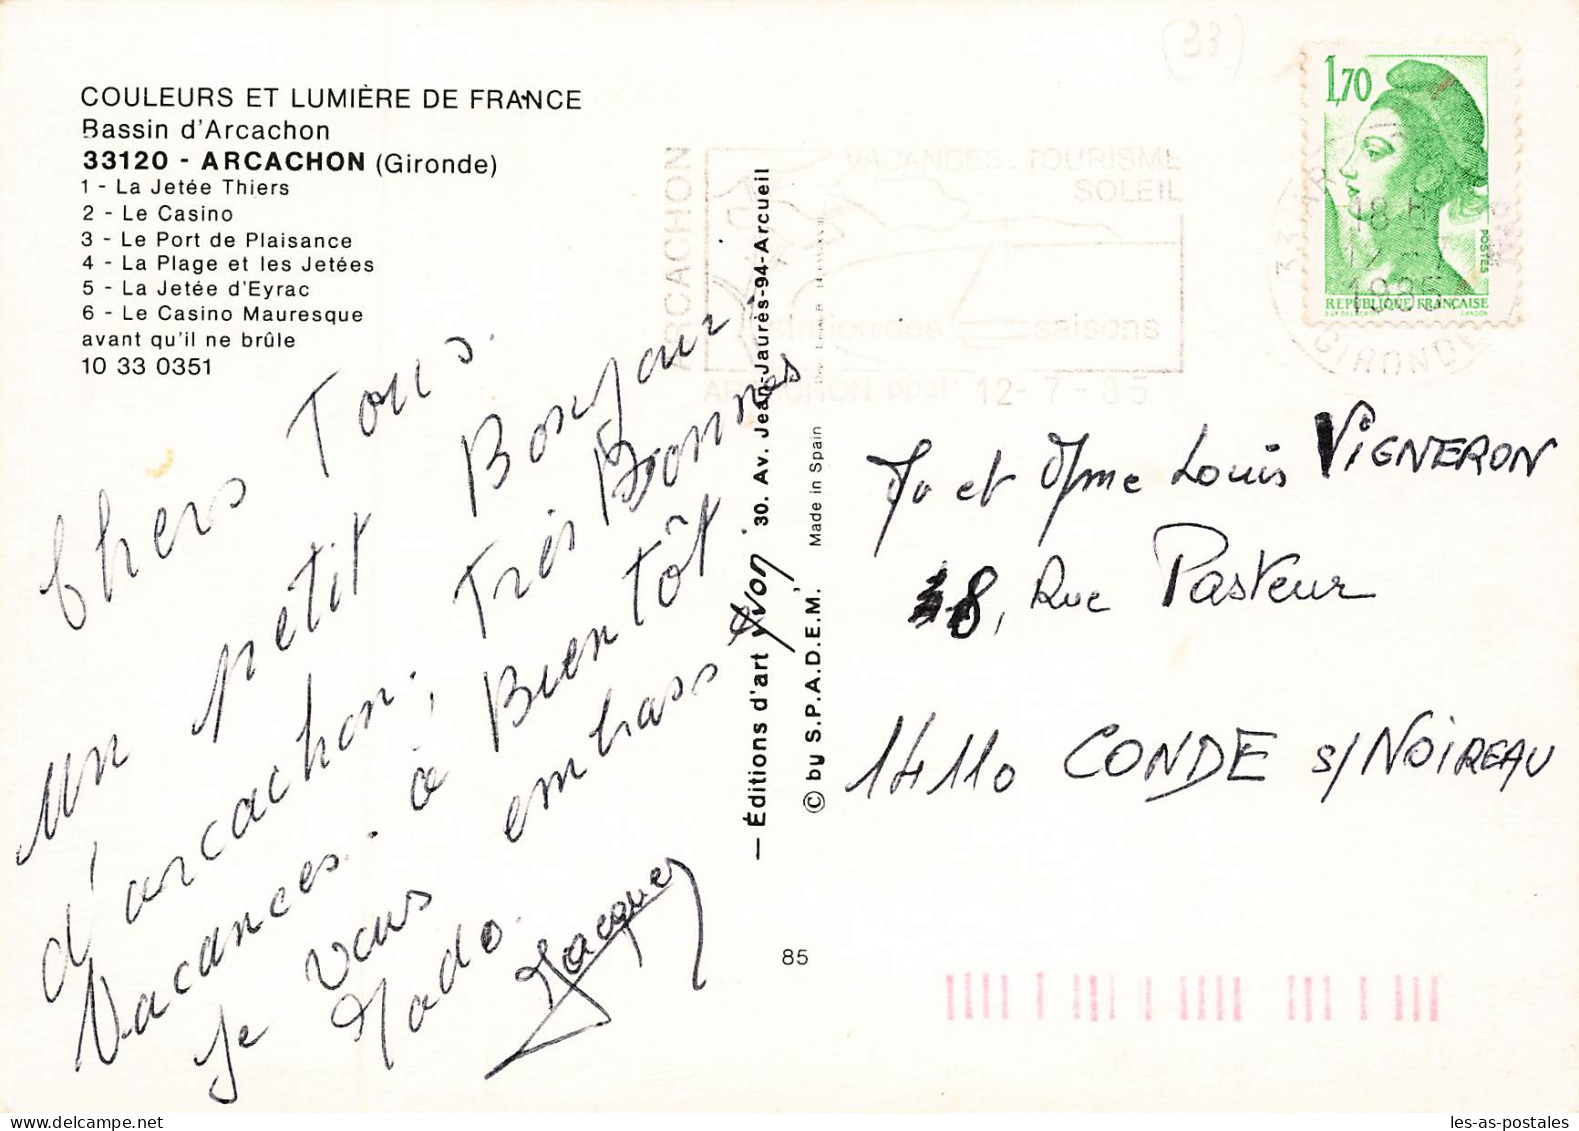 (33)
COULEURS ET LUMIÈRE DE FRANCE
Bassin d'Arcachon
33120 - ARCACHON (Gironde)
1 - La Jetée Thiers
2 - Le Casino
3 - Le Port de Plaisance
4 - La Plage et les Jetées
5 - La Jetée d'Eyrac
6 - Le Casino Mauresque
avant qu'il ne brûle
10 33 0351
Chers Tous.
un petit Bonjour
d'arcachon. Très Bonnes
Vacances. à Bientôt.
Je vous embrass
Mado. Jacques
— Éditions d'art Yvon 30. Av. Jean-Jaurès-94-Arcueil
© by S.P.A.D.E.M. Made in Spain
85
ARCACHON
VACANCES. TOURISME
SOLEIL
station des saisons
ARCACHON ppal 12-7-85
1,70
POSTES
RÉPUBLIQUE FRANÇAISE
GANDON
33 AR
18 H
12 - 7
1985
GIRONDE
et Mme Louis VIGNERON
18, Rue Pasteur
14110 CONDE s/NOIREAU
les-as-postales